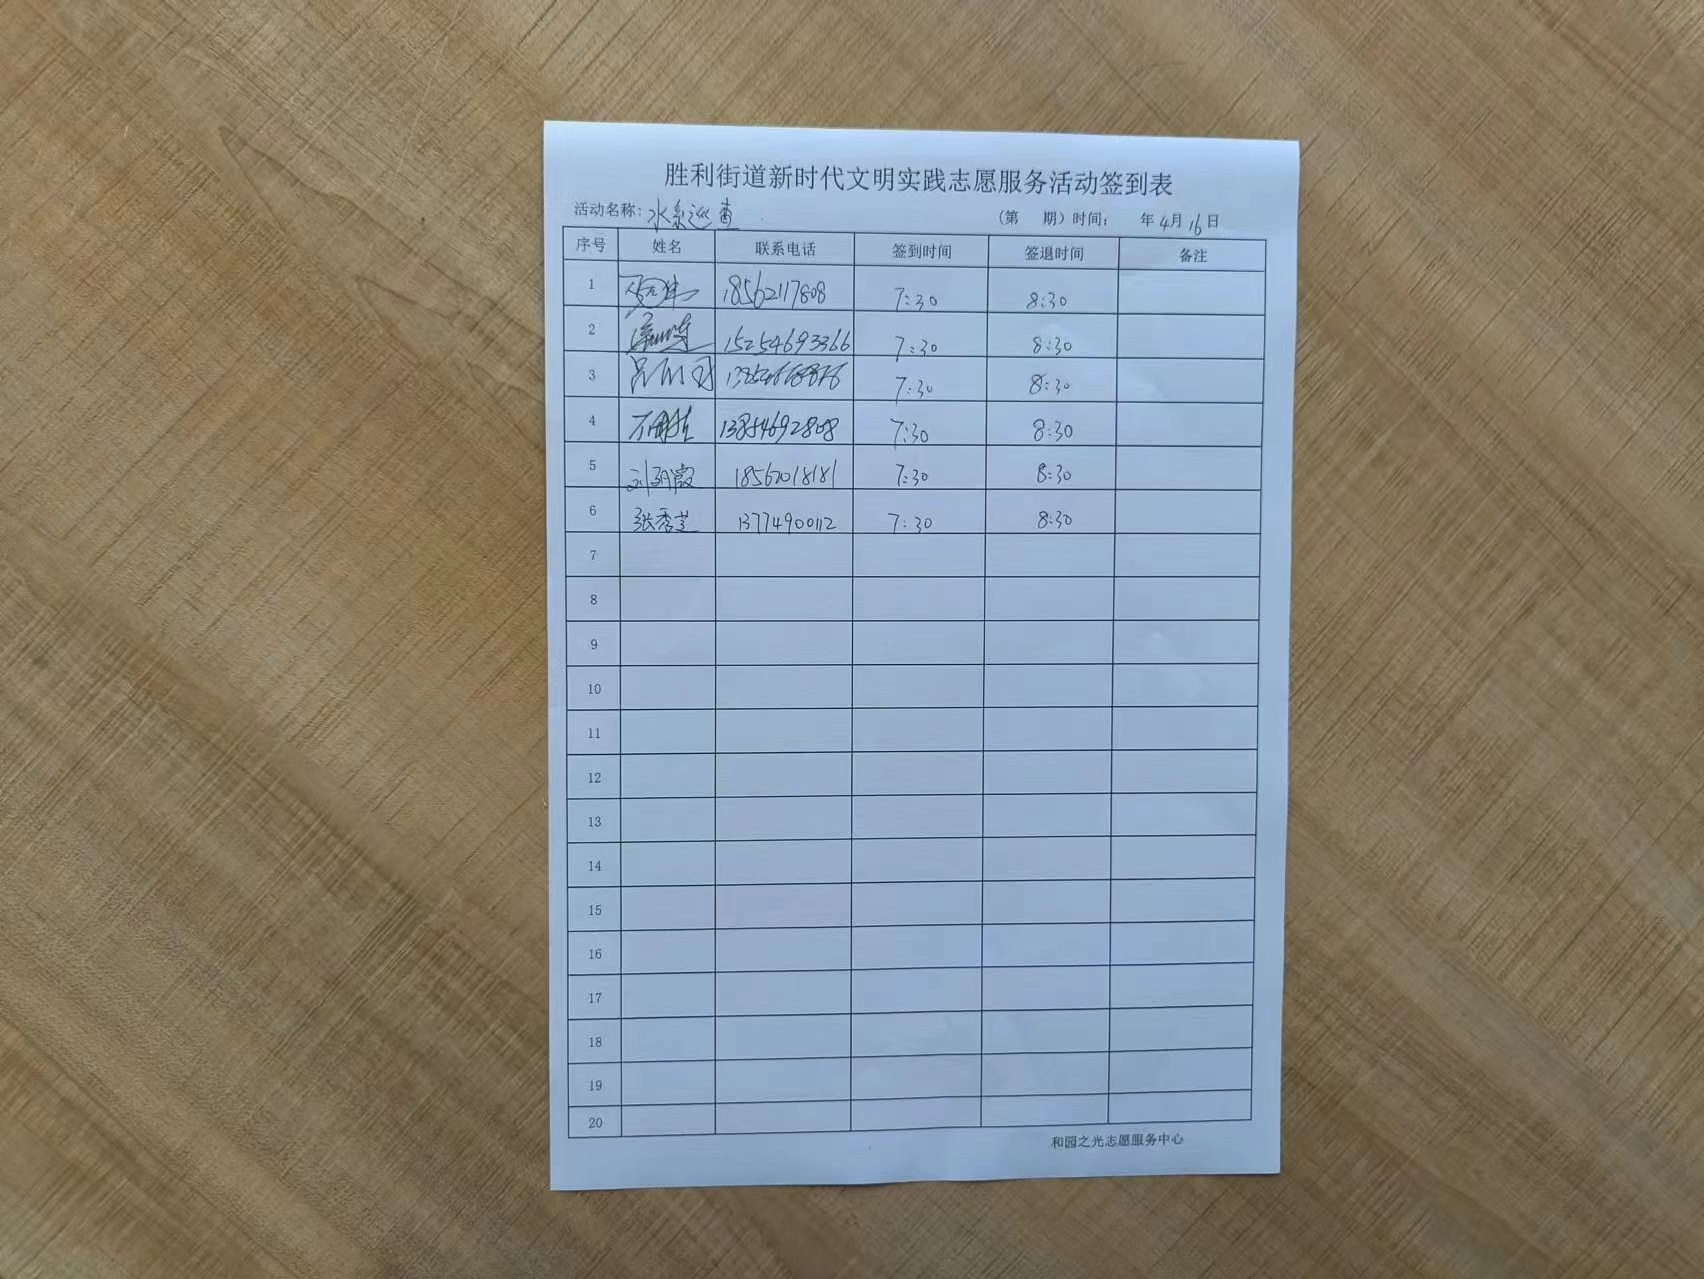 胜利街道新时代文明实践志愿服务活动签到表
活动名称：水系巡查 （第 期）时间： 年4月16日
序号 姓名 联系电话 签到时间 签退时间 备注
1 18562117808 7:30 8:30
2 15254693366 7:30 8:30
3 7:30 8:30
4 13854692808 7:30 8:30
5 刘丽霞 18562018181 7:30 8:30
6 张秀芝 13774900112 7:30 8:30
7
8
9
10
11
12
13
14
15
16
17
18
19
20
和园之光志愿服务中心